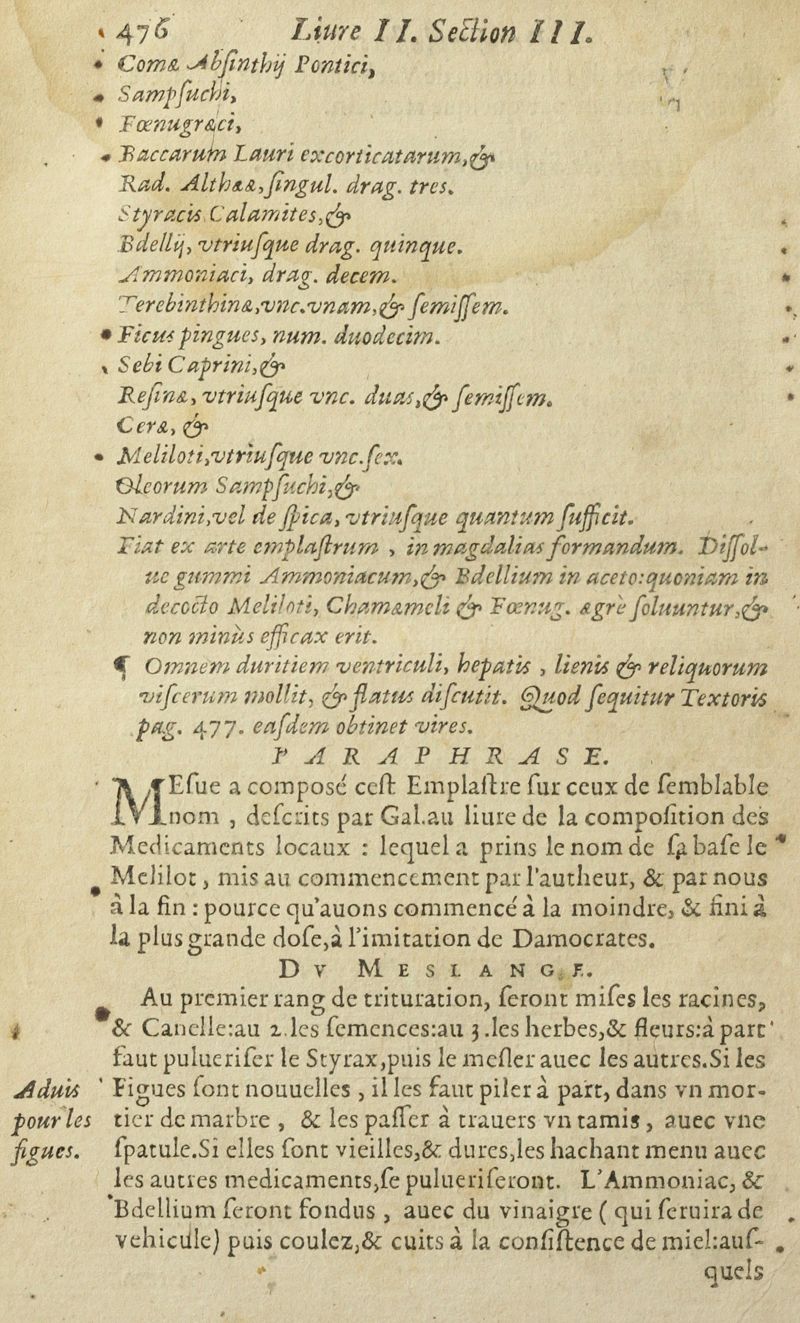 476 Liure II. Section III.
Comæ Absinthij Pontici,
Sampsuchi,
Fœnugræci,
Baccarum Lauri excorticatarum,&
Rad. Althææ,singul. drag. tres.
Styracis Calamites,&
Bdellij, vtriusque drag. quinque.
Ammoniaci, drag. decem.
Terebinthinæ,vnc.vnam,& semissem.
Ficus pingues, num. duodecim.
Sebi Caprini,&
Resinæ, vtriusque vnc. duas,& semissem.
Ceræ, &
Meliloti,vtriusque vnc.sex.
Oleorum Sampsuchi,&
Nardini,vel de spica, vtriusque quantum sufficit.
Fiat ex arte emplastrum , in magdalias formandum. Dissol-
ue gummi Ammoniacum,& Bdellium in aceto:quoniam in
decocto Meliloti, Chamæmeli & Fœnug. ægrè soluuntur,&
non minùs efficax erit.
¶ Omnem duritiem ventriculi, hepatis , lienis & reliquorum
viscerum mollit, & flatus discutit. Quod sequitur Textoris
pag. 477. easdem obtinet vires.
PARAPHRASE.
MEsue a composé cest Emplastre sur ceux de semblable
nom , descrits par Gal.au liure de la composition des
Medicaments locaux : lequel a prins le nom de sa base le
Melilot , mis au commencement par l'autheur, & par nous
à la fin : pource qu'auons commencé à la moindre, & fini à
la plus grande dose,à l'imitation de Damocrates.
DV MESLANGE.
Au premier rang de trituration, seront mises les racines,
& Canelle:au 2.les semences:au 3.les herbes,& fleurs:à part
faut puluerifer le Styrax,puis le mesler auec les autres.Si les
Aduis pour les figues.
Figues sont nouuelles , il les faut piler à part, dans vn mor-
tier de marbre , & les passer à trauers vn tamis , auec vne
spatule.Si elles sont vieilles,& dures,les hachant menu auec
les autres medicaments,se pulueriseront. L'Ammoniac, &
Bdellium seront fondus , auec du vinaigre ( qui seruira de
vehicule) puis coulez,& cuits à la consistence de miel:aus-
quels